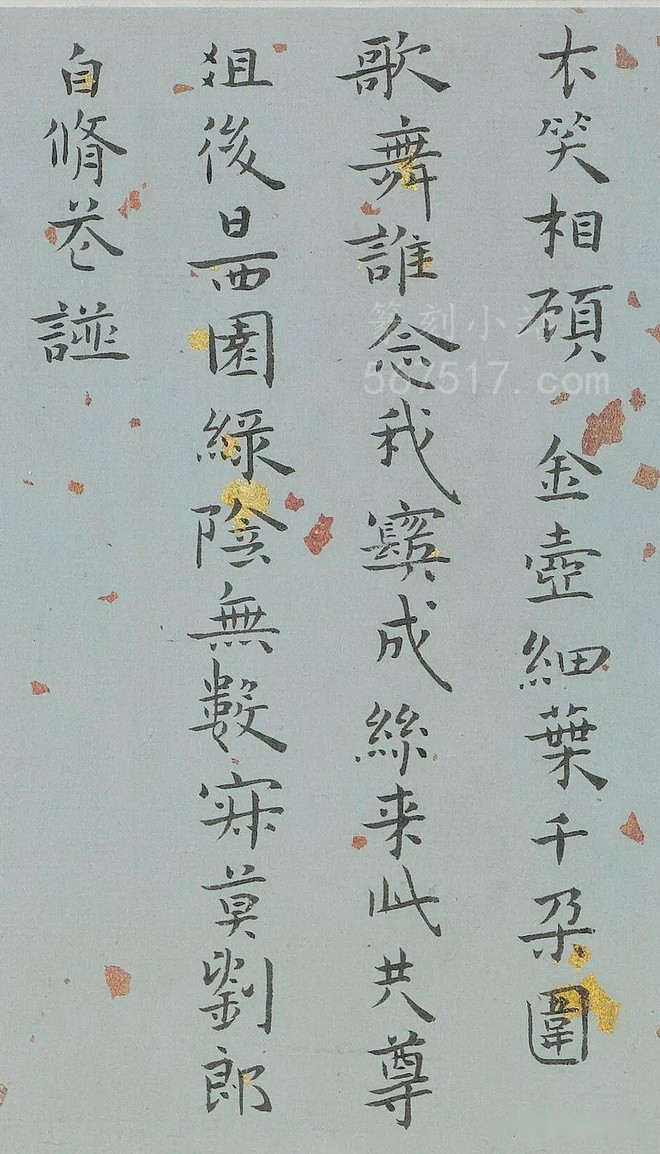 衣笑相頋金壺細葉千朵圍
歌舞誰念我鬢成絲来此共尊
俎後日西園緑陰無數寂莫劉郎
自脩花譜
篆刻小
587517.com